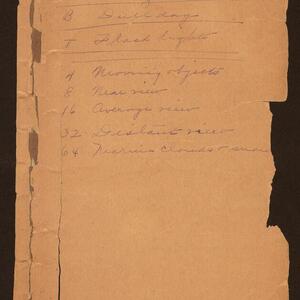 B Dull day
T Flash lights
4 Moving objects
8 Near view
16 Average view
32 Distant view
64 Marine Clouds & snow